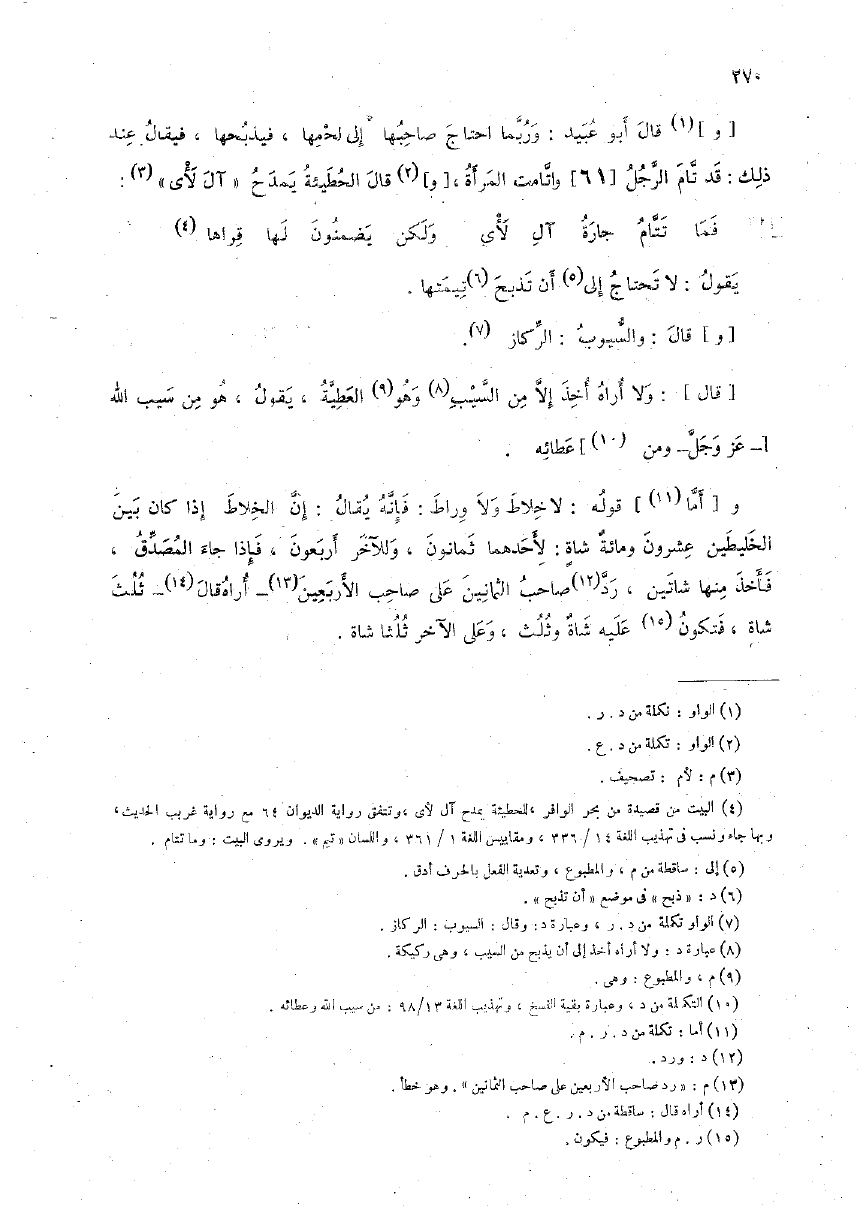 ٢٧٠
[ و ](١) قالَ أَبو عُبَيد : وَرُبَّما احتاجَ صاحِبُها إلى لحْمِها ، فيذبُحها ، فيقالُ عِند
ذلِك : قَد تَّامَ الرَّجُلُ [٦١] واتَّامت المَرأَةُ ، [ و](٢) قالَ الحُطَيئةُ يَمدَحُ « آلَ لَأْى » (٣) :
فَمَا تَتَّامُ جارَةُ آلِ لَأْى وَلَكن يَضمنُونَ لَها قِراها (٤)
يَقولُ : لا تَحتاجُ إلى(٥) أَن تَذبحَ (٦)تِيمَتها .
[ و ] قالَ : والسُّيوبُ : الرِّكاز (٧).
[ قال ] : وَلا أُراهُ أُخِذَ إلاَّ مِن السَّيْبِ(٨) وَهُو(٩) العَطِيَّةُ ، يَقولُ ، هُو مِن سَيب الله
[ – عَز وَجَلَّ – ومن (١٠) ] عَطائِه .
و [ أَمَّا(١١) ] قولُه : لاخِلاطَ وَلاَ وِراطَ : فَإِنَّهُ يُقالُ : إنَّ الخِلاطَ إذا كان بَينَ
الخَليطَين عِشرونَ ومائةُ شاةٍ : لِأَحَدهما ثَمانونَ ، وَللآخَر أَربَعونَ ، فَإِذا جاءَ المُصَدِّقُ ،
فَأَخذَ مِنها شاتَين ، رَدَّ(١٢)صاحبُ الثَّمانِينَ عَلى صاحِب الأَربَعِينَ(١٣) – أُراهُ قالَ(١٤) – ثُلُثَ
شاةٍ ، فَتكونُ (١٥) عَلَيه شَاةٌ وثُلُث ، وَعَلى الآخر ثُلُثا شاة .
(١) الواو : تكملة من د . ر .
(٢) الواو : تكملة من د . ع .
(٣) م : لأم : تصحيف .
(٤) البيت من قصيدة من بحر الوافر ، للحطيئة يمدح آل لأى ، وتتفق رواية الديوان ٦٤ مع رواية غريب الحديث ،
وبها جاء ونسب فى تهذيب اللغة ١٤ /٣٣٦ ، ومقاييس اللغة ١ / ٣٦١ ، واللسان «تيم» . ويروى البيت : وما تتام .
(٥) إلى : ساقطة من م ، والمطبوع ، وتعدية الفعل بالحرف أدق .
(٦) د : « ذبح » فى موضع « أن تذبح » .
(٧) الواو تكملة من د . ر ، وعبارة د : وقال : السيوب : الركاز .
(٨) عبارة د : ولا أراه أخذ إلى أن يذبح من السيب ، وهى ركيكة .
(٩) م ، والمطبوع : وهى .
(١٠) التكملة من د ، وعبارة بقية النسخ ، وتهذيب اللغة ٩٨/١٣ : من سيب الله وعطائه .
(١١) أما : تكملة من د . ر . م .
(١٢) د : ورد .
(١٣) م : « رد صاحب الأربعين على صاحب الثمانين » . وهو خطأ .
(١٤) أراه قال : ساقطة من د . ر . ع . م .
(١٥) ر . م والمطبوع : فيكون .